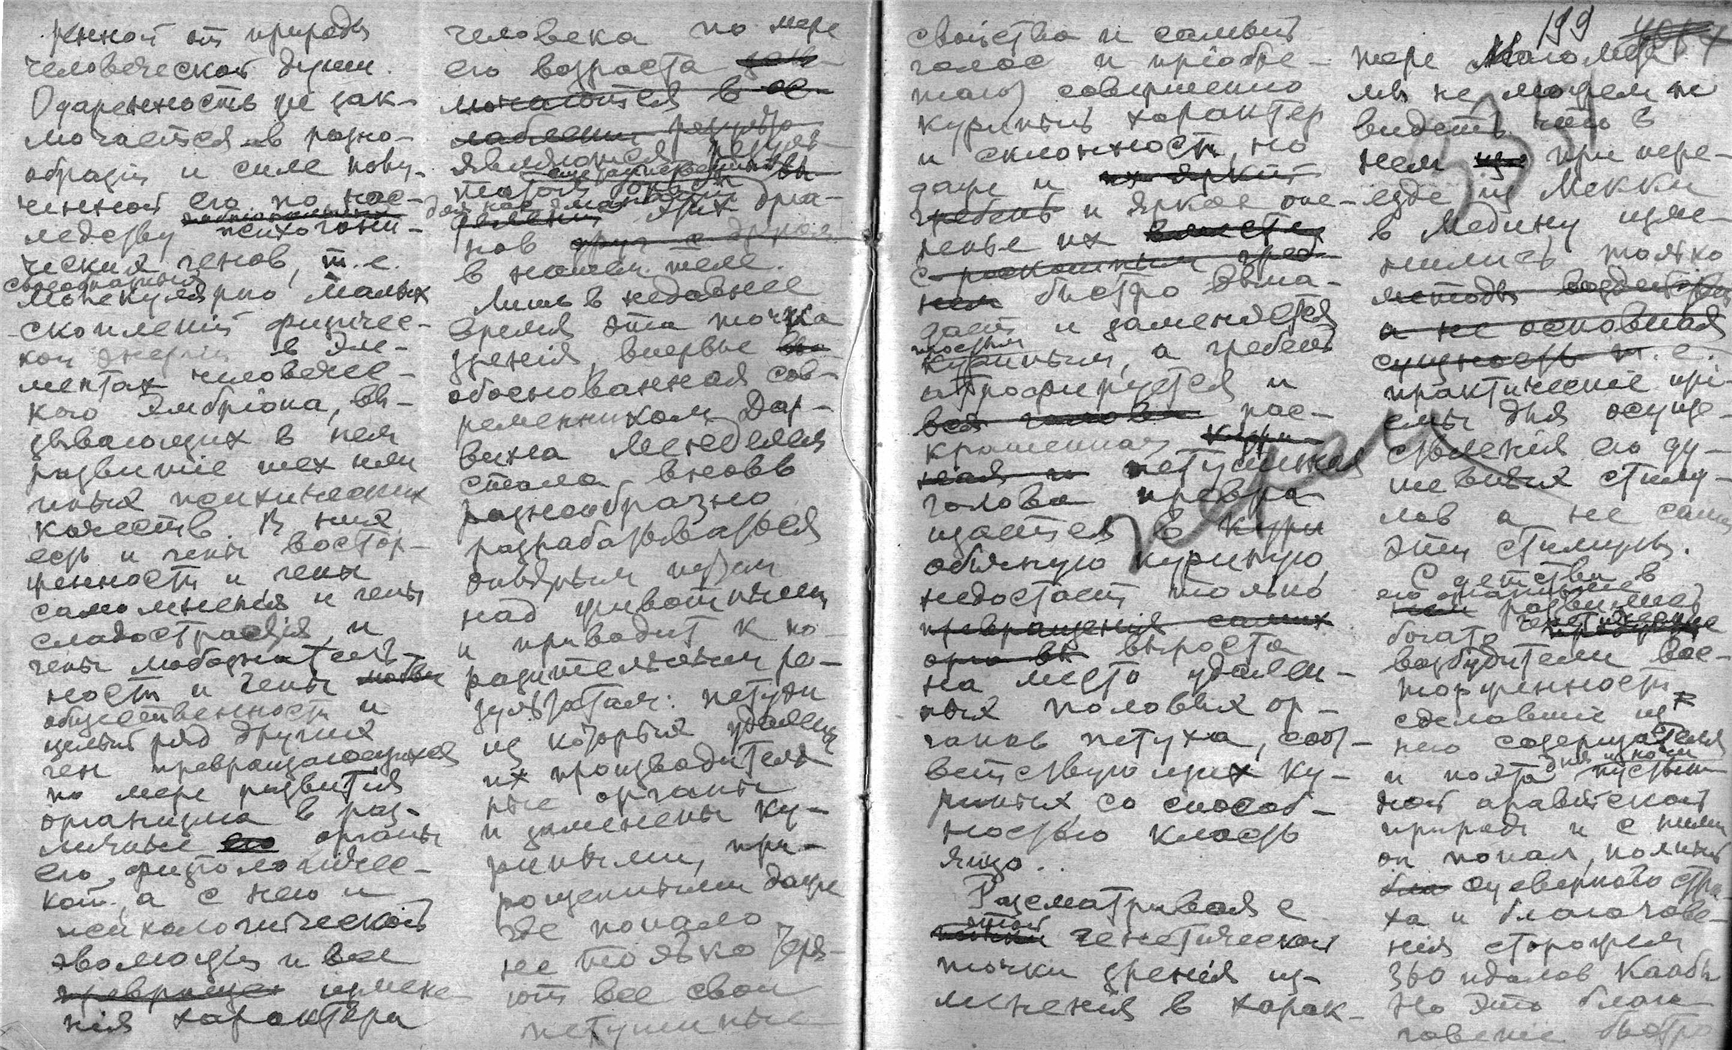 ренной от природы
человеческой души.
Одаренность не зак-
лючается в разно-
образіи и силе полу-
ченной его по нас-
ледству психогени-
ческих генов, т. е.
своеобразных
молекулярно малых
скоплений физичес-
кой энергіи в эле-
ментах человечес-
кого эмбріона, вы-
зывающих в нем
развитіе тех или
иных психических
качеств. В них
есть и гены востор-
женности и гены
самомненія и гены
сладострастія и
гены любознатель-
ности и гены
общественности и
целый ряд других
ген превращающихся
по мере развитія
организма в раз-
личные его органы
его физіологичес-
кой, а с нею и
психологической
эволюціи и все
превращен измене-
нія характера
человека по мере
его возраста
являются резуль-
татом
этих орга-
нов друг с другом
в нашем теле.
Лишь в недавнее
время эта точка
зренія, впервые
обоснованная сов-
ременником Дар-
вина Менделем
стала вновь
разнообразно
разрабатываться
опытным путем
над животными
и приводит к по-
разительным ре-
зультатам: петухи
из которых удалены
их производитель-
ные органы
и заменены ку-
риными, при-
рощенными даже
где попало
не только теря-
ют все свои
петушиные
свойства и самый
голос и пріобре-
тают совершенно
куриный характер
и склонности, но
даже и их яркий
гребень и яркое опе-
ренье их вместе
с роскошным греб-
нем быстро выпа-
дает и заменяется
простым
куриным, а гребень
атрофируется и
вся голова рас-
крашенная
петушиная
голова превра-
щается в кури
обычную куриную
недостает только
превращенія самих
выроста
на место удален-
ных половых ор-
ганов петуха, соот-
ветствующих ку-
риных, со способ-
ностью класть
яйцо.
Разсматривая с
этой
генетической
точки зренія из-
мененія в харак-
199
тере Магомета
мы не можем не
видеть, что в
нем при пере-
езде из Мекки
в Медину изме-
нились только
методы воздействія
а не основная
сущность т. е.
практическіе прі-
емы для осуще-
ствленія его ду-
шевных стиму-
лов а не сами
эти стимулы.
С детства в
его организме
развились
богато
возбудители вос-
торженности
сделавшіе из
него созерцателя
и поэта пустын
ной аравійской
природы и с ними
он попал, полный
суеверного стра-
ха и благогове-
нія сторожем
360 идолов Каабы
Но это благо-
говеніе быстро